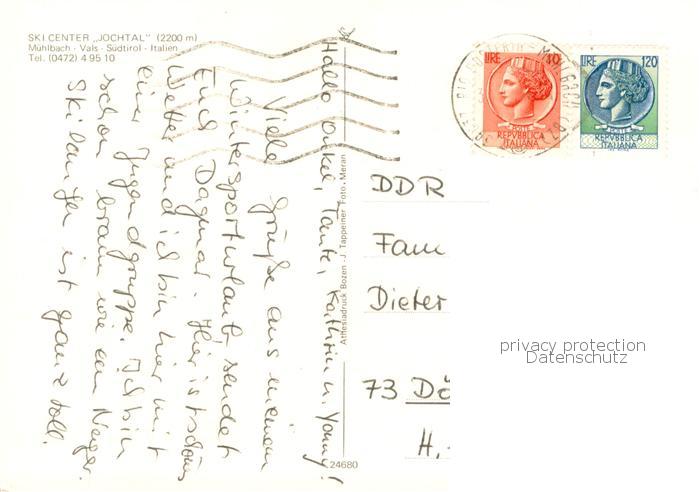 SKI CENTER „JOCHTAL" (2200 m)
Mühlbach - Vals - Südtirol - Italien
Tel. (0472) 4 95 10
Hallo Onkel, Tante, Kathrin u. Yonny!
Viele Grüße aus meinem
Wintersporturlaub sendet
Euch Dagmar. Hier ist schöns
Wetter und ich bin hier mit
einer Jugendgruppe. Ich bin
schon braun wie ein Neger.
Ski Langen ist ganz toll.
Athesiadruck Bozen - J. Tappeiner Foto - Meran
24680
LIRE
POSTE
REPVBBLICA
ITALIANA
LIRE 120
POSTE
REPVBBLICA
ITALIANA
DDR
Fam
Dieter
73 Dö
H.
privacy protection
Datenschutz